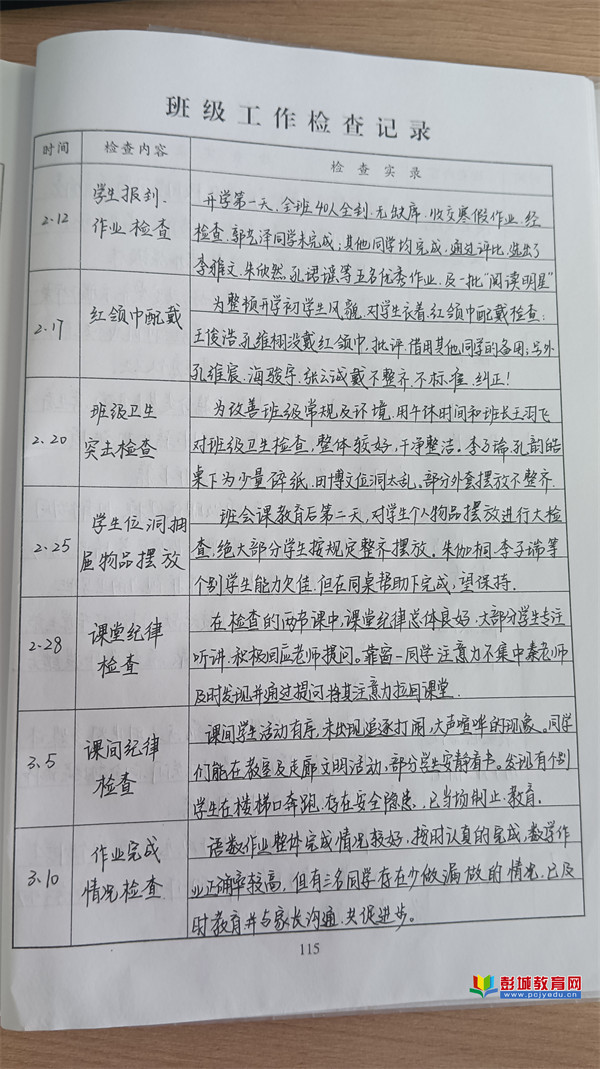 班级工作检查记录
时间 检查内容 检查实录
2.12
学生报到.
作业检查
开学第一天,全班40人全到.无缺席.收交寒假作业.经
检查.郭艺泽同学未完成;其他同学均完成.通过评比.选出了
李雅文.朱欣然.孔珺谣等五名优秀作业.及一批“阅读明星”
2.17
红领巾配戴
为整顿开学初学生风貌.对学生衣着.红领巾配戴检查:
王俊浩.孔维栩没戴红领巾,批评.借用其他同学的备用;另外
孔维宸.海骏宇.张云诚戴不整齐.不标准.纠正!
2.20
班级卫生
突击检查
为改善班级常规及环境.用午休时间和班长王羽飞
对班级卫生检查,整体较好,干净整洁。李子瑞.孔韵皓
桌下为少量碎纸.田博文位洞太乱。部分外套摆放不整齐.
2.25
学生位洞抽
屉物品摆放
班会课教育后第二天,对学生个人物品摆放进行大检
查,绝大部分学生按规定整齐摆放。朱伽桐.李子瑞等
个别学生能力欠佳.但在同桌帮助下完成,望保持.
2.28
课堂纪律
检查
在检查的两节课中,课堂纪律总体良好.大部分学生专注
听讲.积极回应老师提问。靠窗一同学注意力不集中秦老师
及时发现并通过提问将其注意力拉回课堂.
3.5
课间纪律
检查
课间学生活动有序.未出现追逐打闹,大声喧哗的现象。同学
们能在教室及走廊文明活动,部分学生安静看书。发现有个别
学生在楼梯口奔跑.存在安全隐患,已当场制止.教育.
3.10
作业完成
情况检查
语数作业整体完成情况较好,按时认真的完成,数学作
业正确率较高,但有三名同学存在少做漏做的情况.已及
时教育并与家长沟通.共促进步。
115
彭城教育网
www.pcjyedu.cn